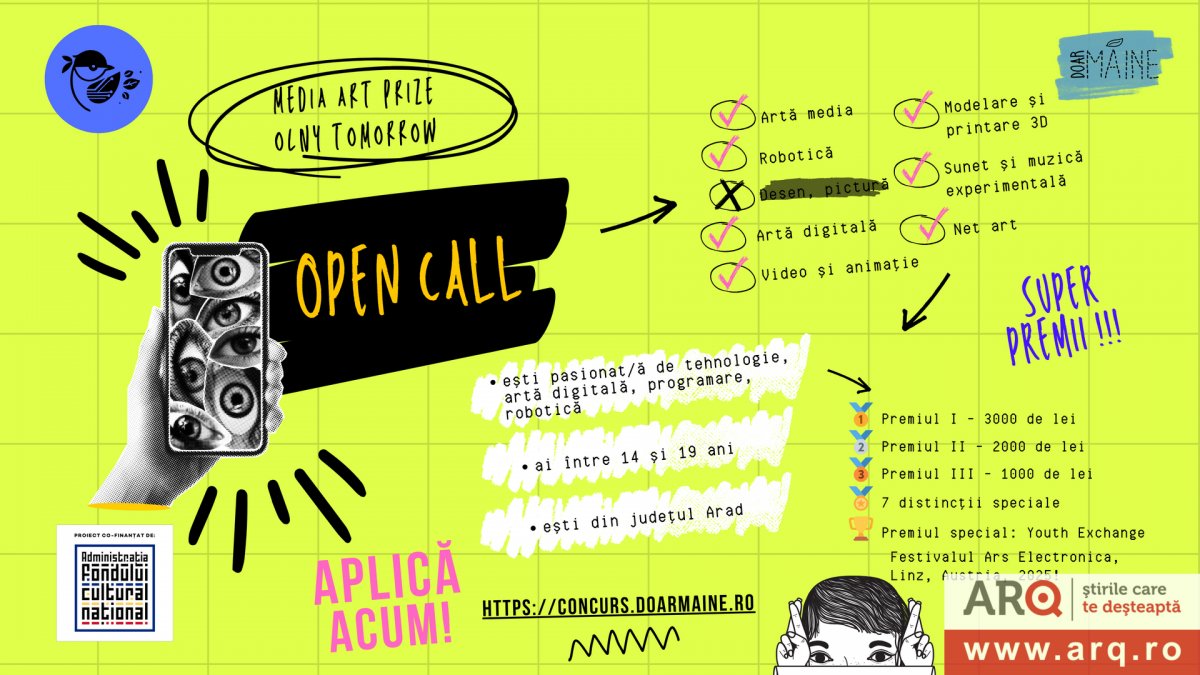 MEDIA ART PRIZE
OLNY TOMORROW
DOAR
MÂINE
OPEN CALL
Artă media
Robotică
Desen, pictură
Artă digitală
Video și animație
Modelare și
printare 3D
Sunet și muzică
experimentală
Net art
SUPER
PREMII !!!
• ești pasionat/ă de tehnologie,
artă digitală, programare,
robotică
• ai între 14 și 19 ani
• ești din județul Arad
1 Premiul I - 3000 de lei
2 Premiul II - 2000 de lei
3 Premiul III - 1000 de lei
7 distincții speciale
Premiul special: Youth Exchange
Festivalul Ars Electronica,
Linz, Austria, 2025!
PROIECT CO-FINANȚAT DE:
Administrația
Fondului
cultural
național
APLICĂ
ACUM!
HTTPS://CONCURS.DOARMAINE.RO
ARQ
știrile care
te deșteaptă
www.arq.ro